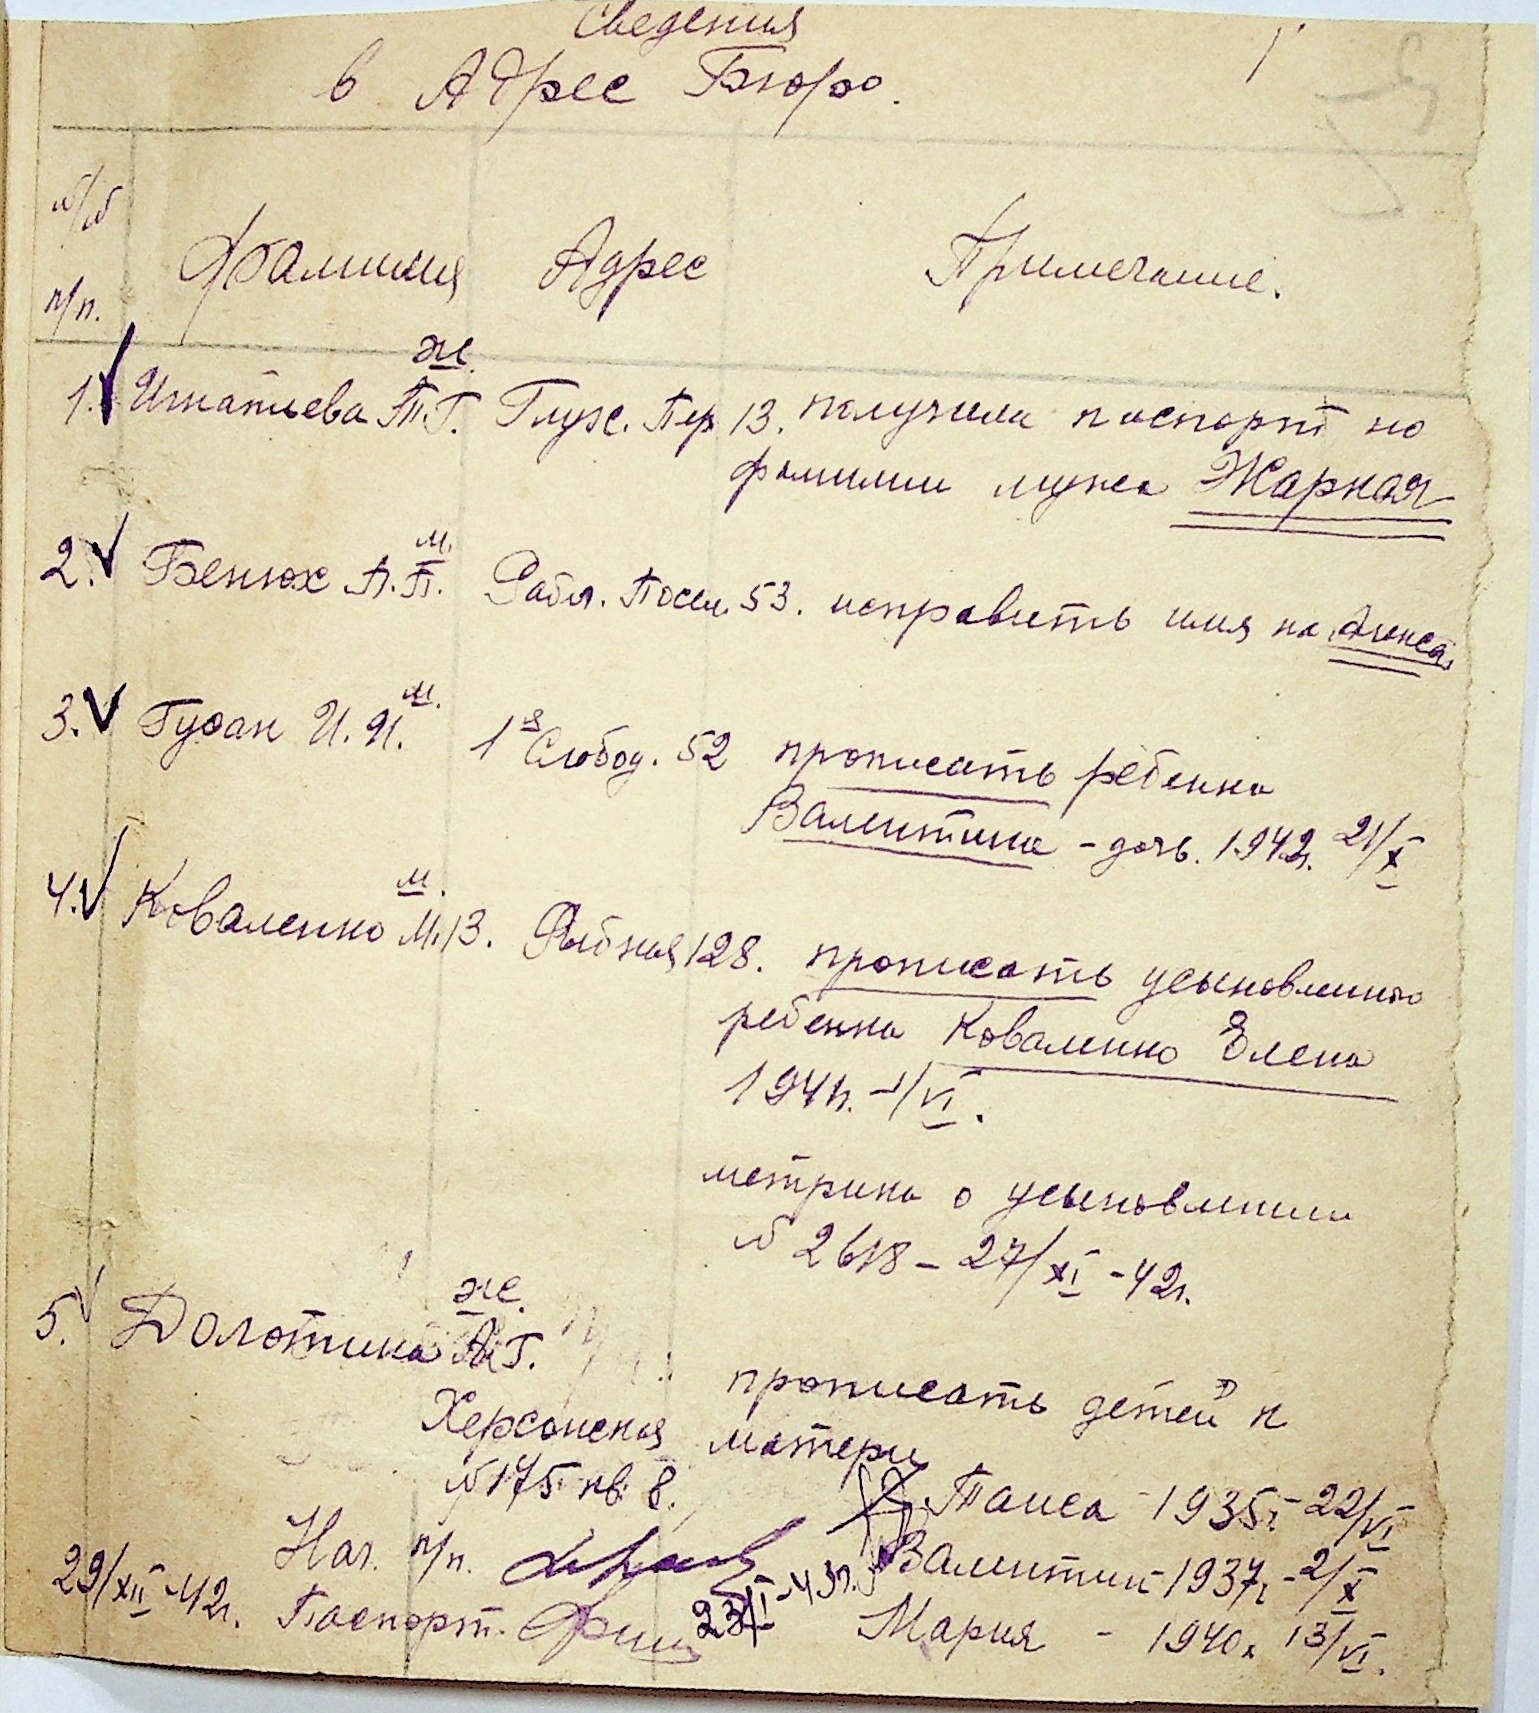 Сведения
в Адрес Бюро.
№/№ п/п. Фамилия Адрес Примечание.
ж.
1. Игнатьева Т.Г. Глух. Пер 13. получила паспорт по
фамилии мужа Жаркая
м.
2. Бенюх А.П. Рабоч. Посел. 53. исправить имя на
м.
3. Гусан И.И. 1я Слобод. 52 прописать ребенка
Валентина - дочь. 1942г. 21/X
м.
4. Коваленко М.З. Рыбная 128. прописать усыновленного
ребенка Коваленко Елена
1941г. -1/VI.
метрика о усыновлении
№ 2618 - 27/XI - 42г.
ж.
5. Долотина А.Г. прописать детей к
Херсонская матери
№ 175 кв. 8.
Таиса - 1935г. - 22/VI
Нач. п/п. Валентин - 1937г. - 2/X
29/XII - 42г. Паспорт. 23/I - 43г. Мария - 1940г. 13/VI.